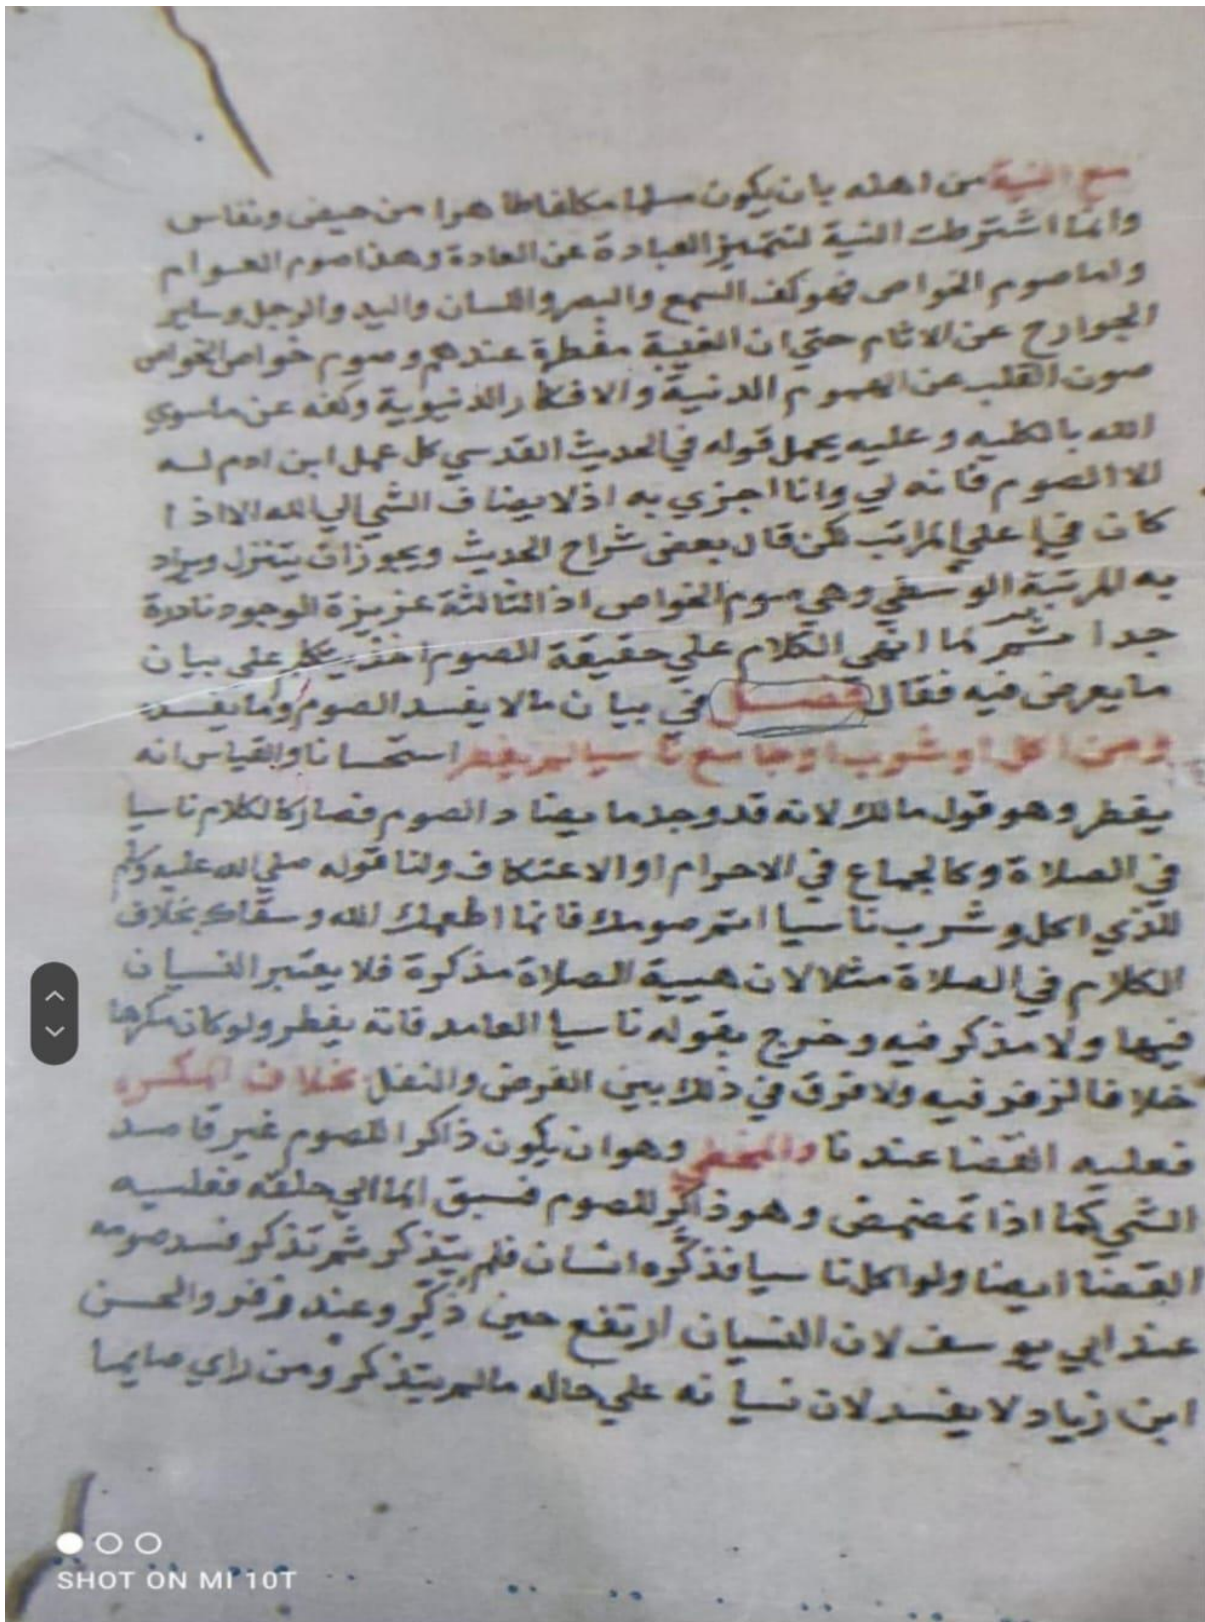 مع النية من اهله بان يكون مسلما مكلفا طاهرا من حيض ونفاس
وانما اشترطت النية لتتميز العبادة عن العادة وهذا صوم العوام
واما صوم الخواص فهو كف السمع والبصر واللسان واليد والرجل وساير
الجوارح عن الاثام حتي ان الغيبة مفطرة عندهم وصوم خواص الخواص
صون القلب عن الهموم الدنية والافكار الدنيوية وكفه عن ماسوي
الله بالكليه وعليه يحمل قوله في الحديث القدسي كل عمل ابن ادم لـه
الا الصوم فانه لي وانا اجزي به اذ لا يضاف الشي الي الله الا اذا
كان في اعلي المراتب لكن قال بعض شراح الحديث ويجوز ان يتنزل ويراد
به المرتبة الوسطي وهي صوم الخواص اذ الثالثة عزيزة الوجود نادرة
جدا ثم لما انهي الكلام علي حقيقة الصوم اخذ يتكلم على بيان
ما يعرض فيه فقال فصـــل في بيان مالا يفسد الصوم وما يفسده
ومن اكل او شرب او جامع ناسيا لم يفطر استحسانا والقياس انه
يفطر وهو قول مالك لانه قد وجد ما يضاد الصوم فصار كالكلام ناسيا
في الصلاة وكالجماع في الاحرام او الاعتكاف ولنا قوله صلي الله عليه وسلم
للذي اكل وشرب ناسيا اتم صومك فانما اطعمك الله وسقاك بخلاف
الكلام في الصلاة مثلا لان هيية الصلاة مذكرة فلا يعتبر النسيان
فيها ولا مذكر فيه وخرج بقوله ناسيا العامد فانه يفطر ولو كان مكرها
خلافا لزفر فيه ولا فرق في ذلك بين الفرض والنفل بخلاف المكره
فعليه القضا عندنا والمخطي وهو ان يكون ذاكرا للصوم غير قاصد
الشي كما اذا تمضمض وهو ذاكر للصوم فسبق الما الي حلقه فعليه
القضا ايضا ولو اكل ناسيا فذكره انسان فلم يتذكر ثم تذكر فسد صومه
عند ابي يوسف لان النسيان ارتفع حين ذكر وعند زفر والحسن
ابن زياد لا يفسد لان نسيانه علي حاله مالم يتذكر ومن راي صايما
SHOT ON MI 10T